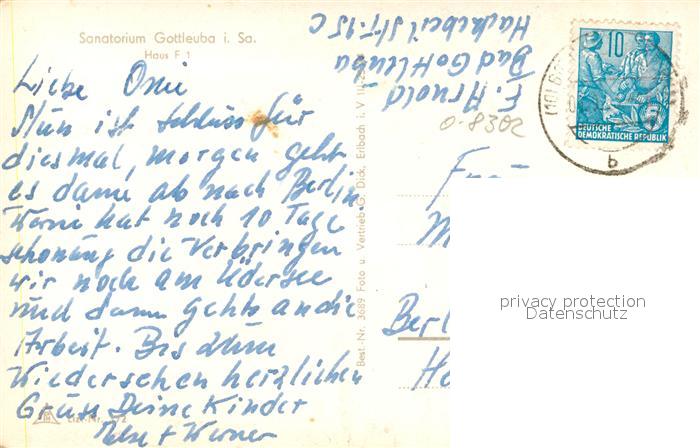 Sanatorium Gottleuba i. Sa.
Haus F 1
Liebe Omi
Nun ist schluss für
diesmal, morgen geht
es dann ab nach Berlin.
Werni hat noch 10 Tage
schonung die Verbringen
wir noch am Üdersee
und dann gehts an die
Arbeit. Bis zum
Wiedersehen herzlichen
Gruss Deine Kinder
+ Werner
Best.-Nr. 3689 Foto u. Vertrieb G. Dick, Erlbach i. V.
F. Arnold
Bad Gottleuba
Hackebeilstr. 15 C
0-8302
10
DEUTSCHE
DEMOKRATISCHE REPUBLIK
b
Frau
M
Berl
Ha
privacy protection
Datenschutz